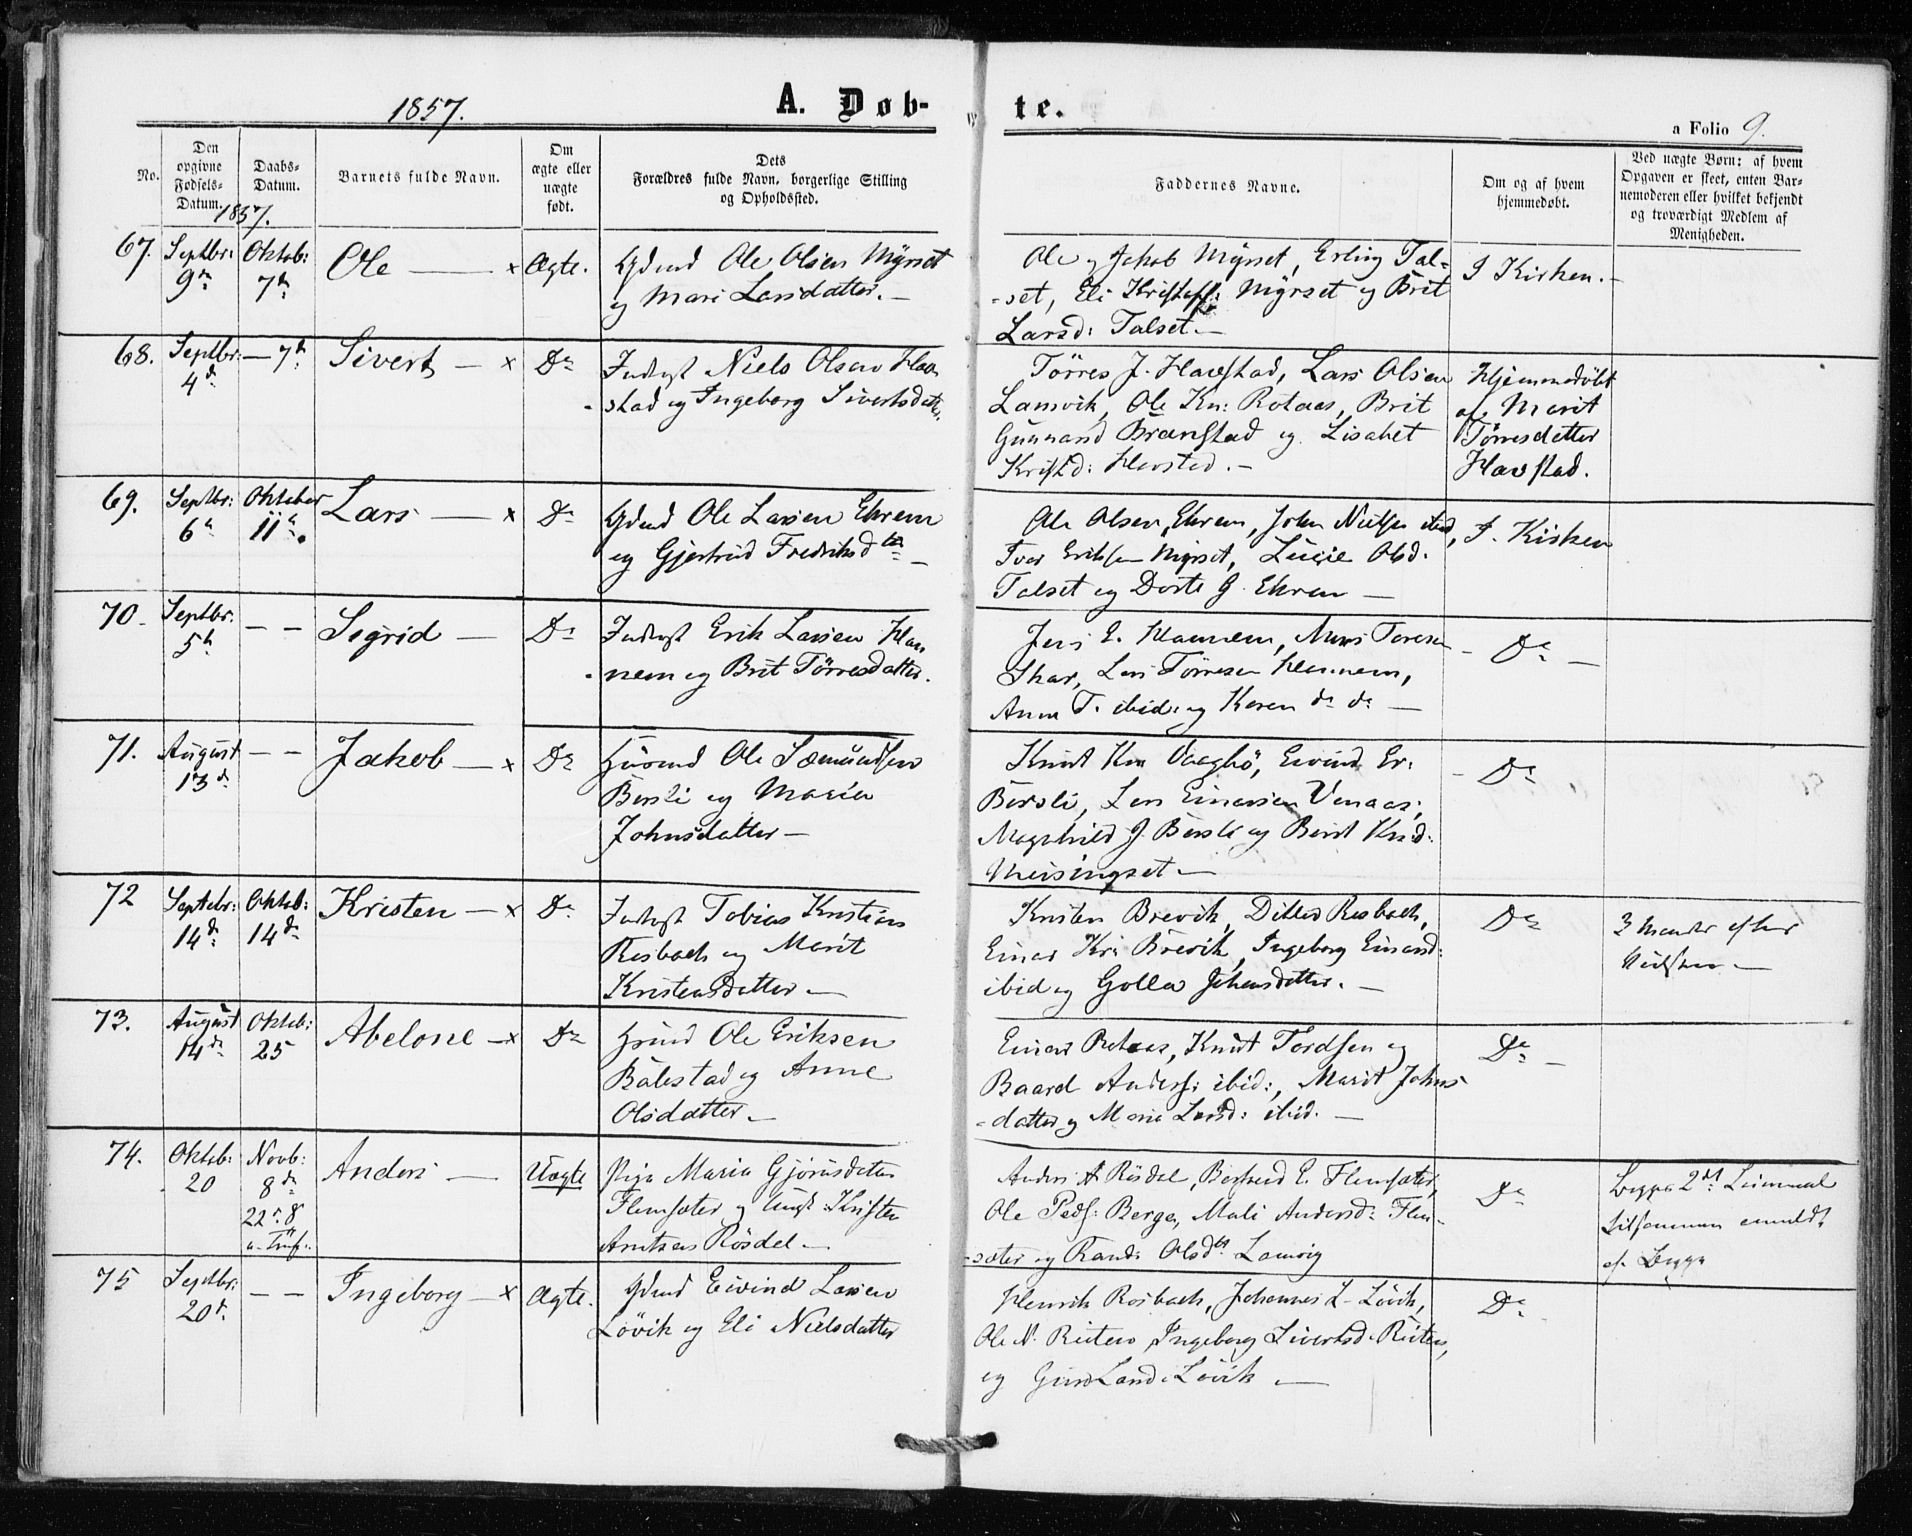 1857.
A. Døb-
te.
a Folio 9.
No.
Den opgivne Fødsels-Datum.
Daabs-Datum.
Barnets fulde Navn.
Om ægte eller uægte født.
Dets Forældres fulde Navn, borgerlige Stilling og Opholdssted.
Faddernes Navne.
Om og af hvem hjemmedøbt.
Ved uægte Børn: af hvem Opgaven er skeet, enten Barnemoderen eller hvilket bekjendt og troværdigt Medlem af Menigheden.
1857.
67. Septbr: 9de Oktob: 7de Ole — x Ægte.
Gdmd Ole Olsen Myrset
og Mari Larsdatter. —
Ole og Jakob Myrset, Erling Tal-
-set, Eli Kristoff: Myrset og Brit
Larsd: Talset. —
I Kirken. -
68. Septbr: 4de — 7de Sivert — x Do
Inderst Niels Olsen Hav-
-stad og Ingeborg Sivertsdatter
Törres J. Havstad, Lars Olsen
Lamvik, Ole Kn: Rotaas, Brit
Gunnarsd Brænstad og Lisabet
Kristd: Havstad. —
Hjemmedöbt
af Marit
Törresdetter
Havstad.
69. Septbr: 6te Oktober 11te Lars — x Do
Gdmd Ole Larsen Ehrem
og Gjertrud Fredriksdtr —
Ole Olsen Ehrem, John Nielsen ibid,
Iver Eriksen Myrset, Lucie Olsd.
Talset og Dorte J. Ehrem —
I. Kirken
70. Septbr. 5te — — Sigrid — Do
Inderst Erik Larsen Han-
-nem og Brit Törresdatter.
Jens E. Hannem, Toresen
Skar, Lars Törresen Hannem,
Anne T. ibid: og Karen do do —
- Do —
71. August 13de — — Jakob — x Do
Huusmd Ole Sæmundsen
Bersli og Maria
Johnsdatter —
Knut Kn Vaagbö, Eivind Er.
Bersli, Lars Einarsen Venaas,
Magnhild J. Bersli og Berit Knd:
Meisingset —
- Do
72 Septebr: 14de Oktob: 14de Kristen — x Do
Inderst Tobias Kristians
Rosbach og Marit
Kristensdatter —
Kristen Brevik, Ditlev Rosbach,
Einar Kr: Brevik, Ingeborg Einarsd:
ibid og Golla Johansdatter. —
Do
3 Maaneder efter
Vielsen —
73. August 14de Oktob: 25 Abelone — x Do
Huusmd Ole Eriksen
Bölestad og Anne
Olsdatter —
Einar Rotaas, Knut Tordsen og
Baard Anders: ibid:, Marit Johns-
-datter og Mari Larsd: ibid. —
Do —
74. Oktob: 20 Novb: 8de Anders — Uægte
Pige Maria Gjörusdatter
Flemsæter og Ungk Kristen
Arntsen Rösdal —
Anders A Rösdal, E. Flemsæter,
Ole Peds: Berge, Mali Andersd: Flem-
-sæter og Randi Olsdtr Lamvig
Do
Begges 2det Leiermaal
tilsammen anmeldt
af Begge
75 Septbr: 20de — — Ingeborg — x Ægte.
Gdmd Eivind Larsen
Lövik og Eli Nielsdatter
Henrik Rosbach, Johannes L. Lövik,
Ole N. Reiten, Ingeborg Sivertsd. Reiten,
og Lövik —
Do